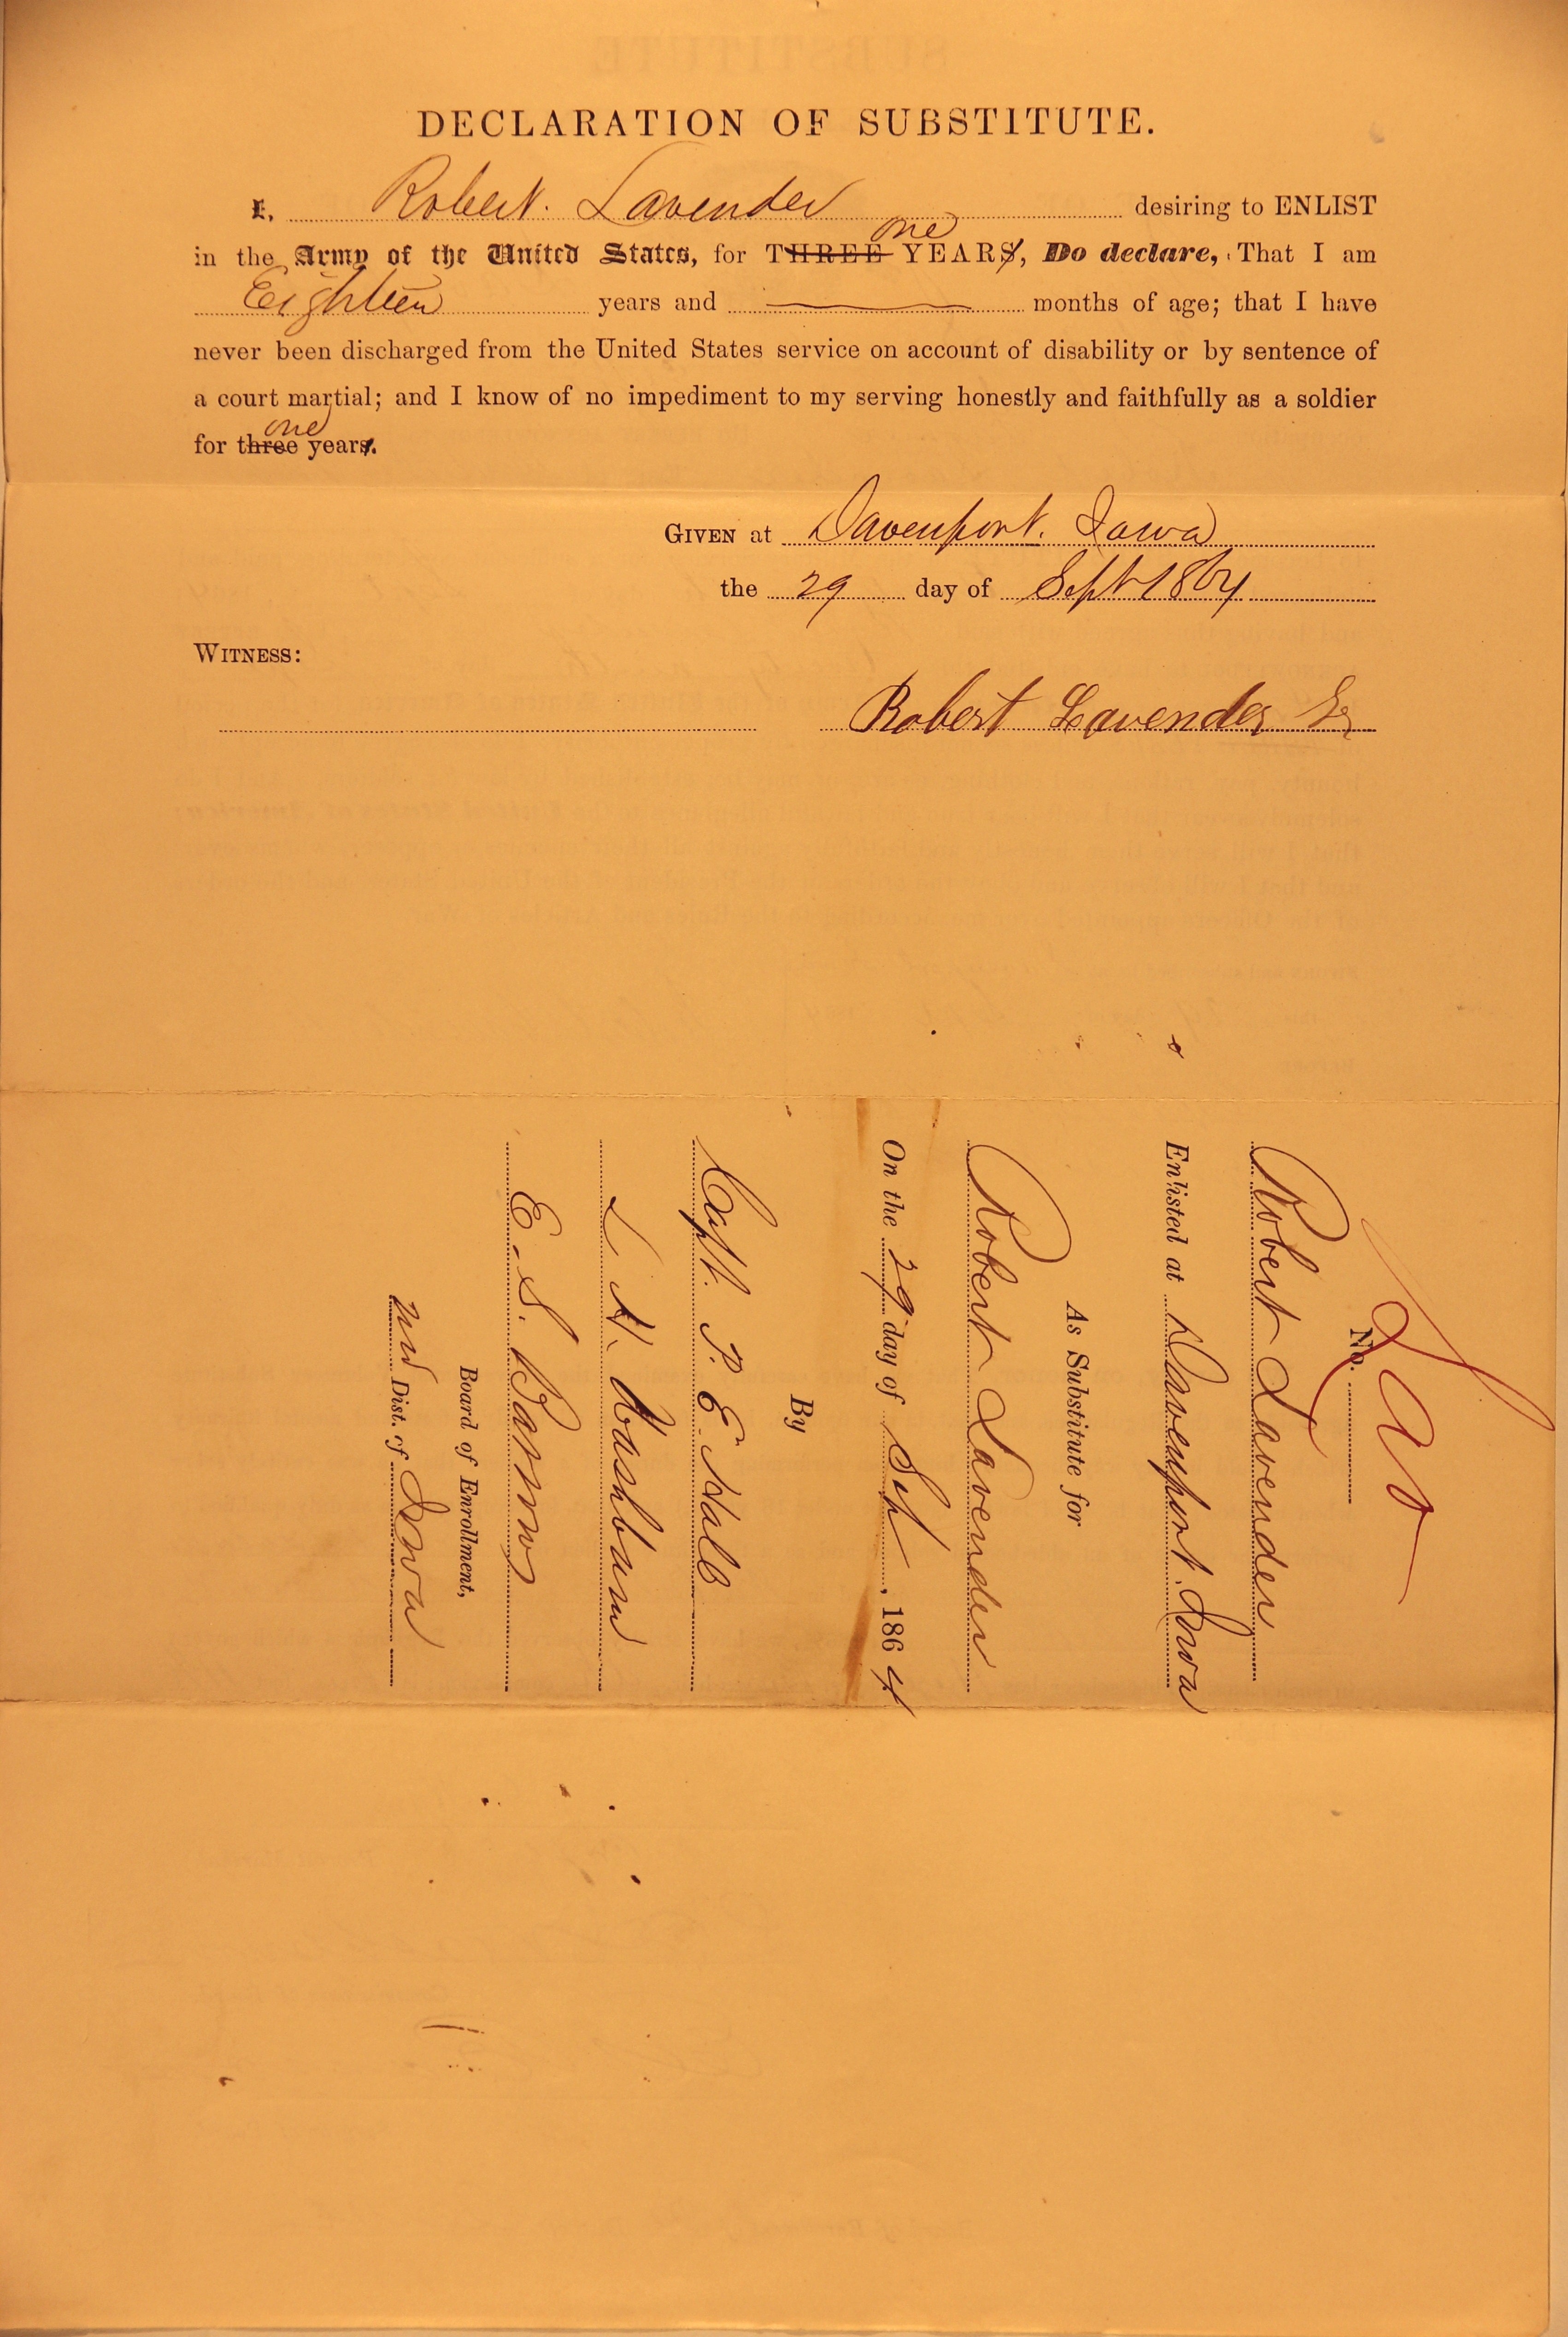 DECLARATION OF SUBSTITUTE.
I, Robert Lavender desiring to ENLIST
one
in the Army of the United States, for THREE YEARS, Do declare, That I am
Eighteen years and months of age; that I have
never been discharged from the United States service on account of disability or by sentence of
a court martial; and I know of no impediment to my serving honestly and faithfully as a soldier
one
for three years.
GIVEN at Davenport. Iowa
the 29 day of Sept 1864
WITNESS:
Robert Lavender
No.
Robert Lavender
Enlisted at Davenport. Iowa
As Substitute for
Robert Lavender
On the 29 day of Sep, 1864
By
Capt. P. E. Hall
L. H. Washburn
E. S. Barrows
Board of Enrollment,
2nd Dist. of Iowa